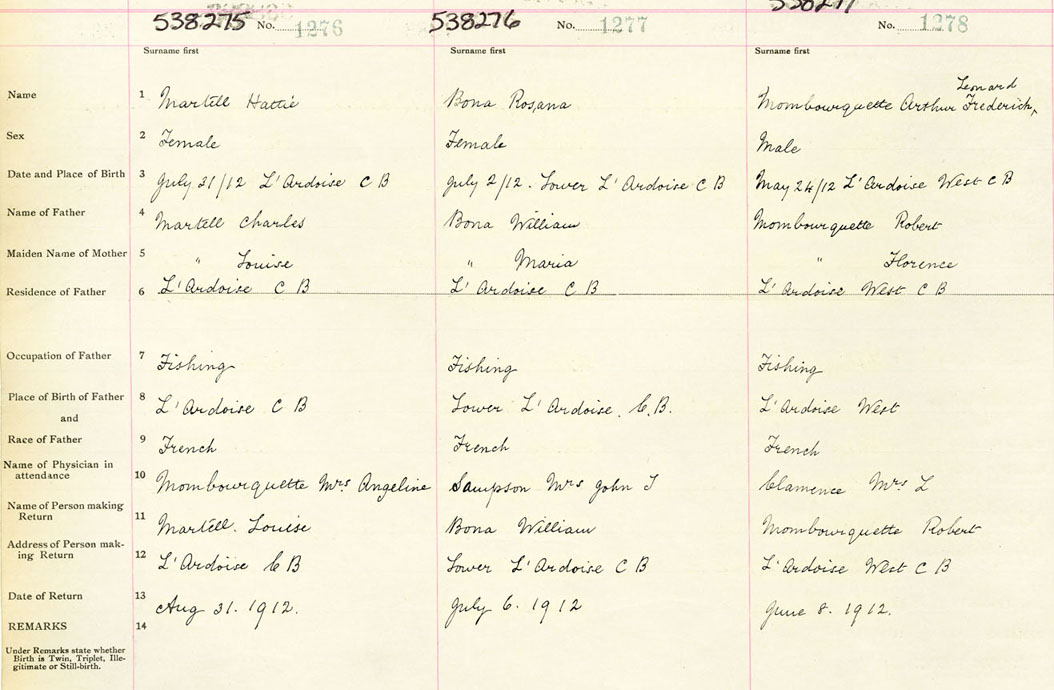 538275 No. 1276 538276 No. 1277 538277 No. 1278
Surname first Surname first Surname first
Leonard
Name 1 Martell Hattie Bona Rosana Mombourquette Arthur Frederick,
Sex 2 Female Female Male
Date and Place of Birth 3 July 31/12 L'Ardoise C B July 2/12. Lower L'Ardoise C B May 24/12 L'Ardoise West C B
Name of Father 4 Martell Charles Bona William Mombourquette Robert
Maiden Name of Mother 5 " Louise " Maria " Florence
Residence of Father 6 L'Ardoise C B L'Ardoise C B L'Ardoise West C B
Occupation of Father 7 Fishing Fishing Fishing
Place of Birth of Father 8 L'Ardoise C B Lower L'Ardoise. C.B. L'Ardoise West
and
Race of Father 9 French French French
Name of Physician in
attendance 10 Mombourquette Mrs Angeline Sampson Mrs John J Clamence Mrs L
Name of Person making
Return 11 Martell. Louise Bona William Mombourquette Robert
Address of Person mak-
ing Return 12 L'Ardoise C B Lower L'Ardoise C B L'Ardoise West C B
Date of Return 13 Aug 31. 1912. July 6. 1912 June 8. 1912.
REMARKS 14
Under Remarks state whether
Birth is Twin, Triplet, Ille-
gitimate or Still-birth.